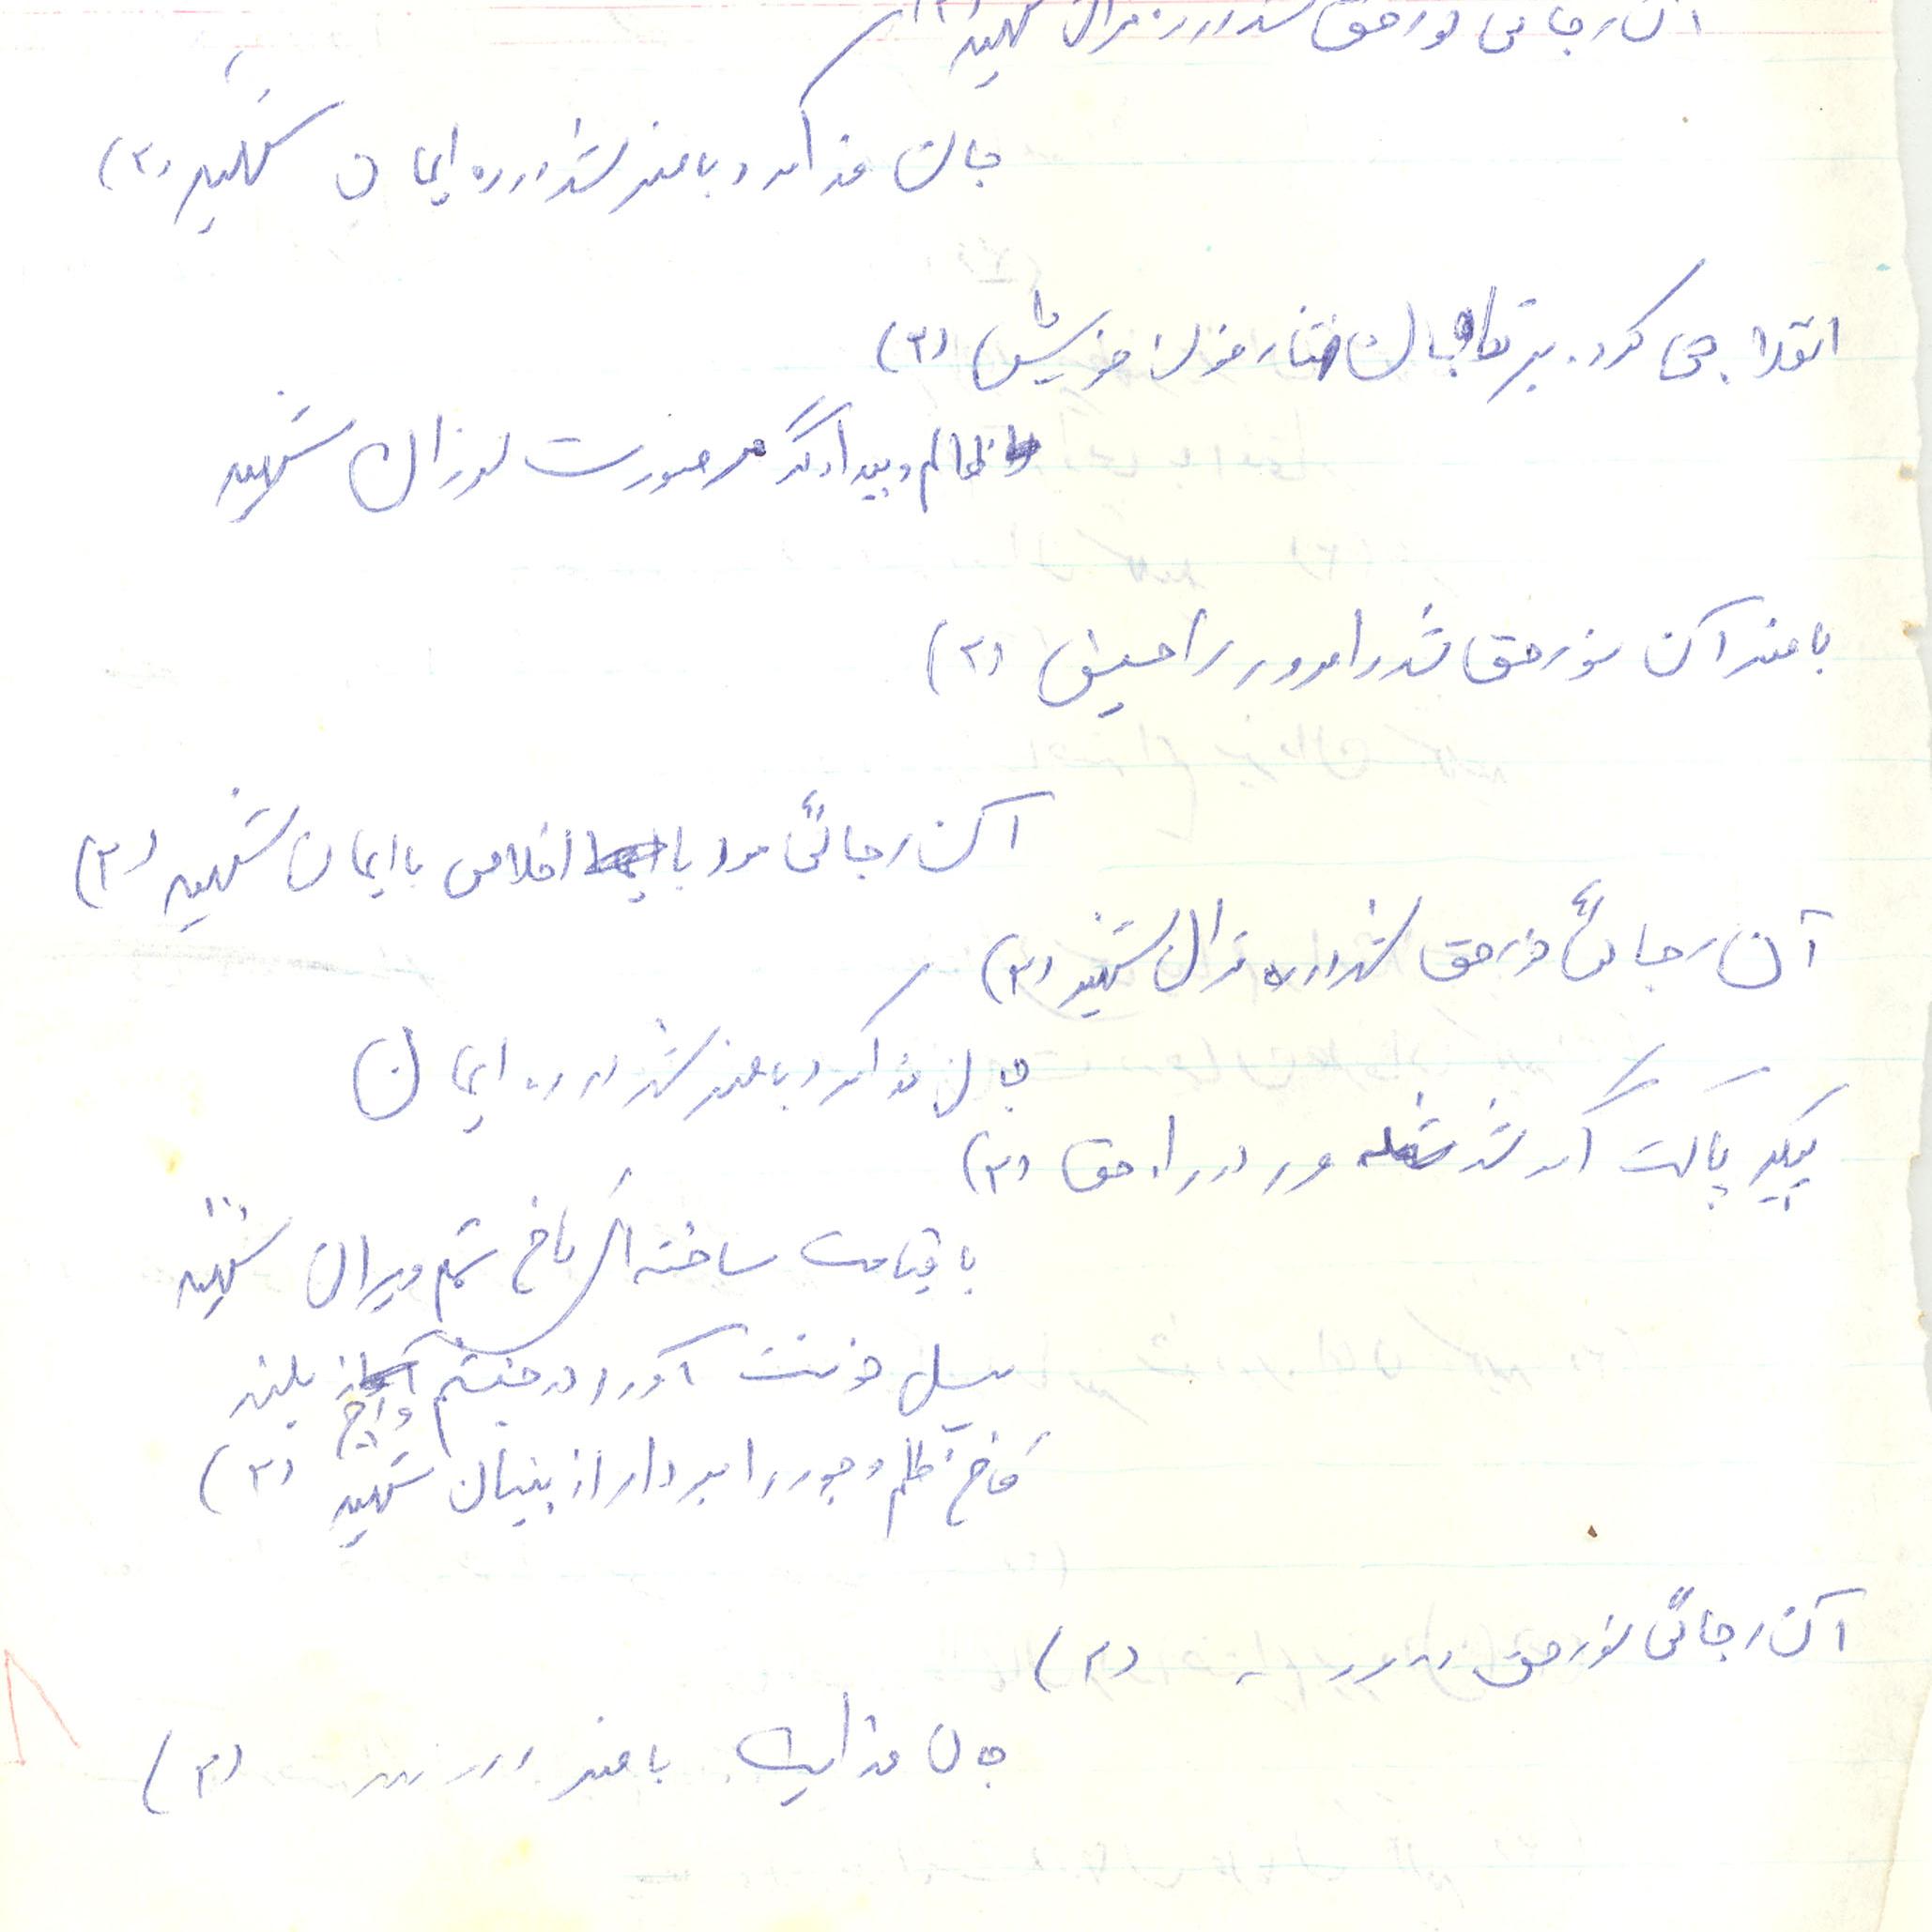 آن رجائی نور حق شد در ره قرآن شهید (۲)
جان فدا کرد و باهنر شد در ره ایمان شهید (۲)
اقتدا می کرد بر قرآن خویش (۲)
ظالم و بیدادگر صورت لرزان شهید
باهنر آن نور حق شد رامرو راحسین (۲)
آن رجائی مرد با اخلاص با ایمان شهید (۲)
آن رجائی نور حق شد در ره قرآن شهید (۲)
جان فدا کرد باهنر شد در ره ایمان
پیکر پاکت اگر شد شعله ور در راه حق (۲)
با قیامت ساخته آن کاخ ستم ویران شهید
سیل خونت آورد در خشم واج بلند
کاخ ظلم و جور را بردار از بنیان شهید (۲)
آن رجائی نور حق (۲)
جان فدا باهنر (۲)